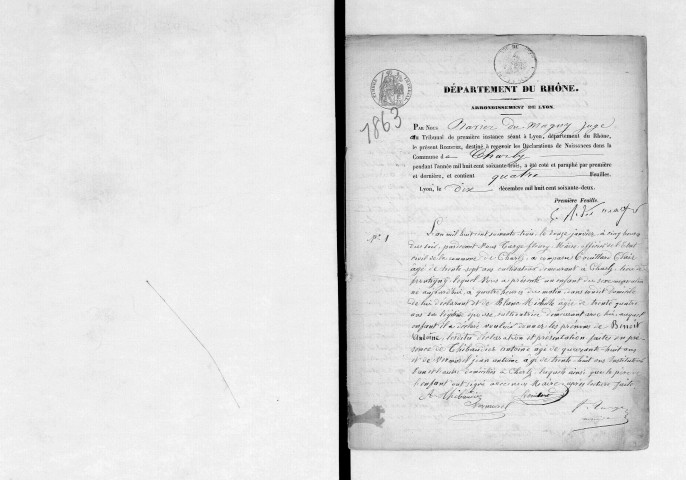 1863
DÉPARTEMENT DU RHÔNE.
ARRONDISSEMENT DE LYON.
PAR NOUS Juge
au Tribunal de première instance séant à Lyon, département du Rhône,
le présent REGISTRE, destiné à recevoir les Déclarations de Naissances dans la
Commune d e Charly
pendant l'année mil huit cent soixante-trois, a été coté et paraphé par première
et dernière, et contient quatre Feuilles.
Lyon, le dix décembre mil huit cent soixante-deux.
Première Feuille.
N° 1
L'an mil huit cent soixante trois, le douze janvier, à cinq heures
du soir, pardevant Nous fleury Maire officier de l'état
civil de la commune de Charly, a comparu Clair
âgé de trente sept ans cultivateur demeurant à Charly, lieu de
lequel Nous a présenté un enfant du sexe masculin
né aujourd'hui, à quatre heures du matin dans son domicile
de lui déclarant et de Blanc Michelle âgée de trente quatre
ans sa légitime épouse cultivatrice demeurant avec lui, auquel
enfant il a déclaré vouloir donner les prénoms de Benoit
Antoine, lesdites déclaration et présentation faites en pre-
sence de Thibaudier antoine âgé de quarante huit ans
et de jean antoine âgé de trente huit ans Instituteur
tous les deux domiciliés à Charly, lesquels ainsi que le père de
l'enfant ont signé avec nous Maire, après lecture faite
A Thibaudier